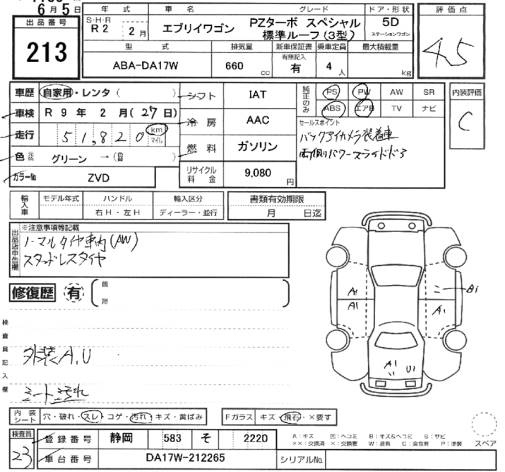 6月5日
出品番号
213
S・H・R
年 式
R2 2月
車 名
エブリイワゴン
グレード
PZターボ スペシャル
標準ルーフ(3型)
ドア・形状
5D
ステーションワゴン
評 価 点
4.5
型 式
ABA-DA17W
排気量
660 cc
新車保証書
有無記入
有
乗車定員
4 人
最大積載量
kg
車歴 自家用・レンタ
車検 R 9 年 2 月(27日)
走行 51,820 km マイル
色 グリーン
カラーNo ZVD
シフト IAT
冷 房 AAC
燃 料 ガソリン
リサイクル料金 9,080 円
純正のみ
PS PW AW SR
ABS エアB TV ナビ
セールスポイント
バックアイカメラ装着車
両側パワースライドドア
内装評価
C
輸入車
モデル年式 ハンドル 輸入区分
右H・左H ディーラー・並行
書類有効期限
月 日迄
出品店申告欄
※注意事項等記載
ノーマルタイヤ車内(AW)
スタッドレスタイヤ
修復歴 有
箇所
検査員記入欄
外装A,U
シート汚れ
A1
A1
A1
B1
A1
U1
内装シート 穴・破れ・スレ・コゲ・汚れ・キズ・黄ばみ
Fガラス キズ・飛石・×要す
スペア
検査員
23
登録番号 静岡 583 そ 2220
車台番号 DA17W-212265
シリアルNo.